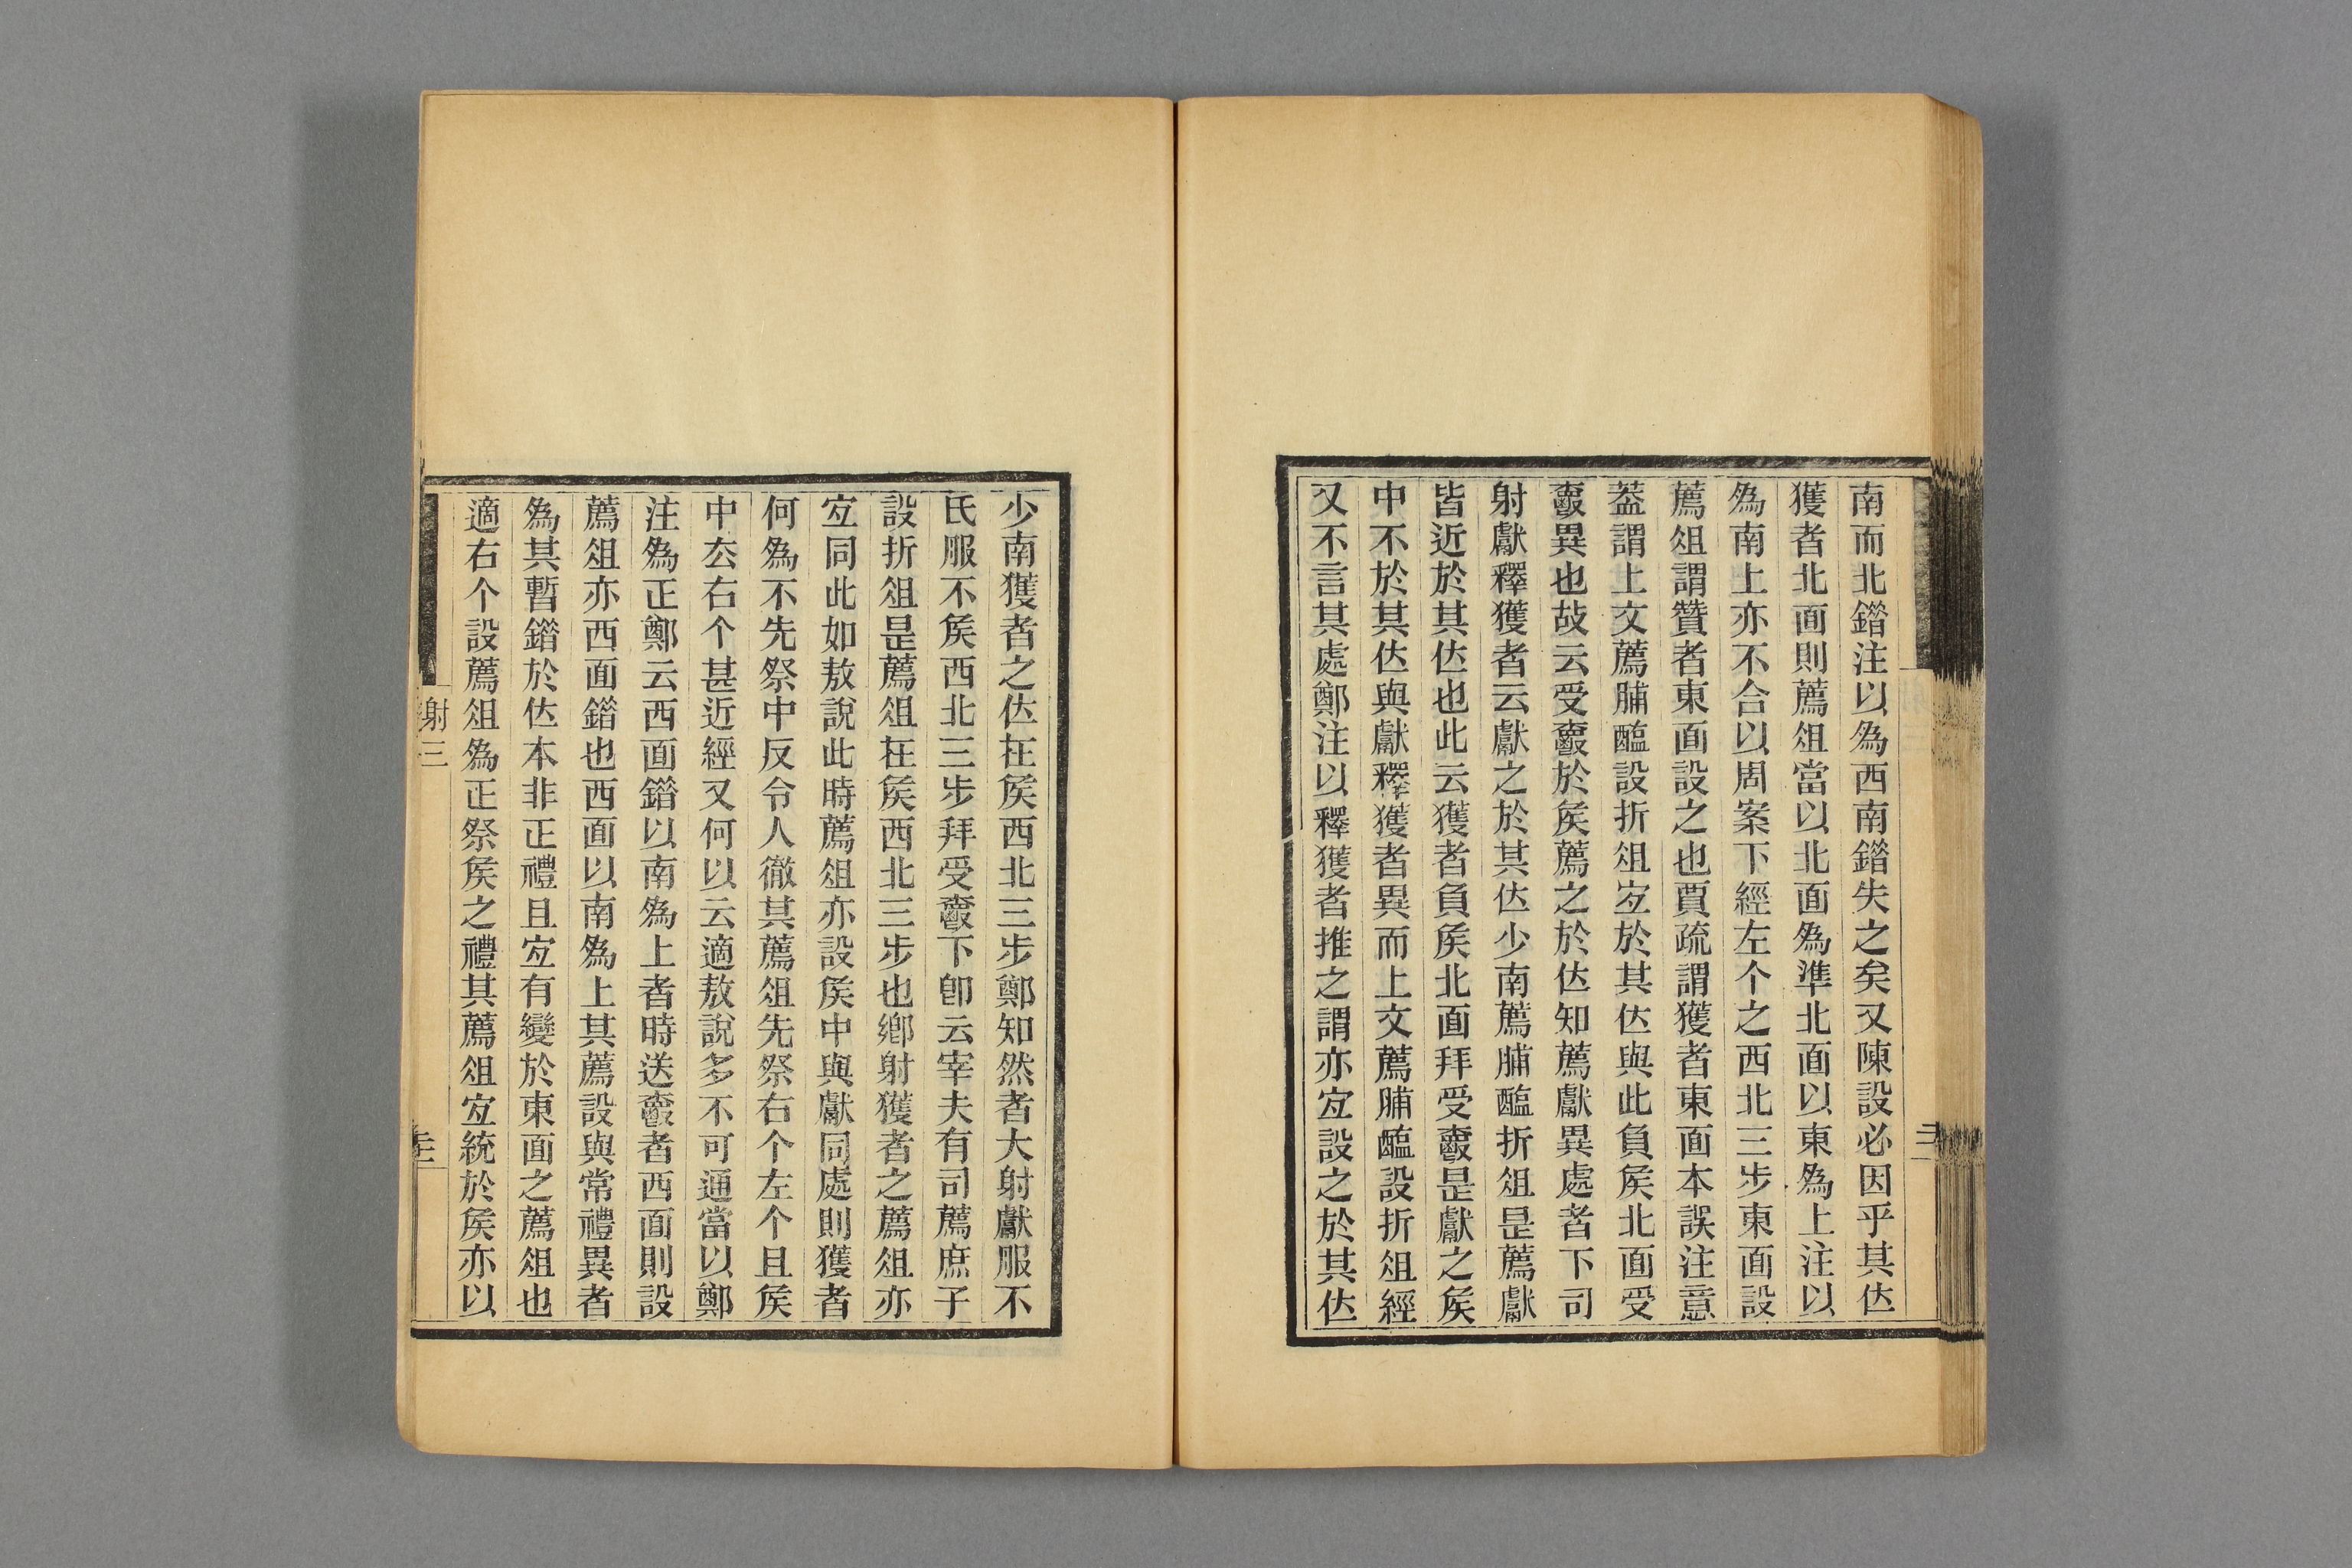 南而北鐕注以為西南鐕失之矣又陳設必因乎其位
獲者北面則薦俎當以北面為準北面以東為上注以
為南上亦不合以周案下經左个之西北三步東面設
薦俎謂贊者東面設之也賈疏謂獲者東面本誤注意
葢謂上文薦脯醢設折俎宐於其位與此負矦北面受
𤔲異也故云受𤔲於矦薦之於位知薦獻異處者下司
射獻釋獲者云獻之於其位少南薦脯醢折俎是薦獻
皆近於其位也此云獲者負矦北面拜受𤔲是獻之矦
中不於其位與獻釋獲者異而上文薦脯醢設折俎經
又不言其處鄭注以釋獲者推之謂亦宐設之於其位
少南獲者之位在矦西北三步鄭知然者大射獻服不
氏服不矦西北三步拜受𤔲下卽云宰夫有司薦庶子
設折俎是薦俎在矦西北三步也鄕射獲者之薦俎亦
宐同此如敖說此時薦俎亦設矦中與獻同處則獲者
何為不先祭中反令人徹其薦俎先祭右个左个且矦
中厺右个甚近經又何以云適敖說多不可通當以鄭
注為正鄭云西面鐕以南為上者時送𤔲者西面則設
薦俎亦西面鐕也西面以南為上其薦設與常禮異者
為其暫鐕於位本非正禮且宐有變於東面之薦俎也
適右个設薦俎為正祭矦之禮其薦俎宐統於矦亦以
射三